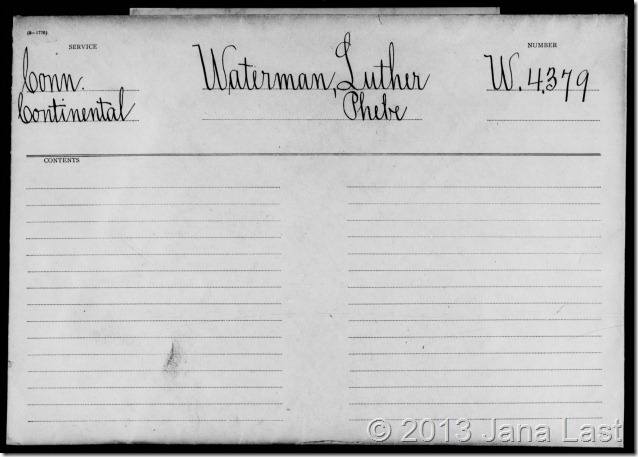 (3—1776)
SERVICE
NUMBER
Conn.
Continental
Waterman, Luther
Phebe
W. 4379
CONTENTS
© 2013 Jana Last